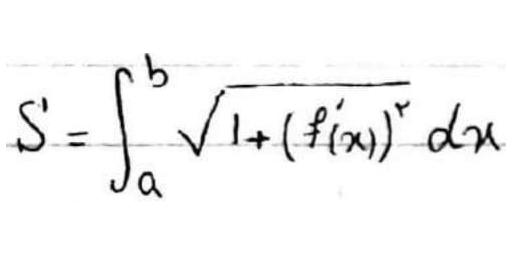 S = ∫_a^b √(1 + (f'(x))^۲) dx